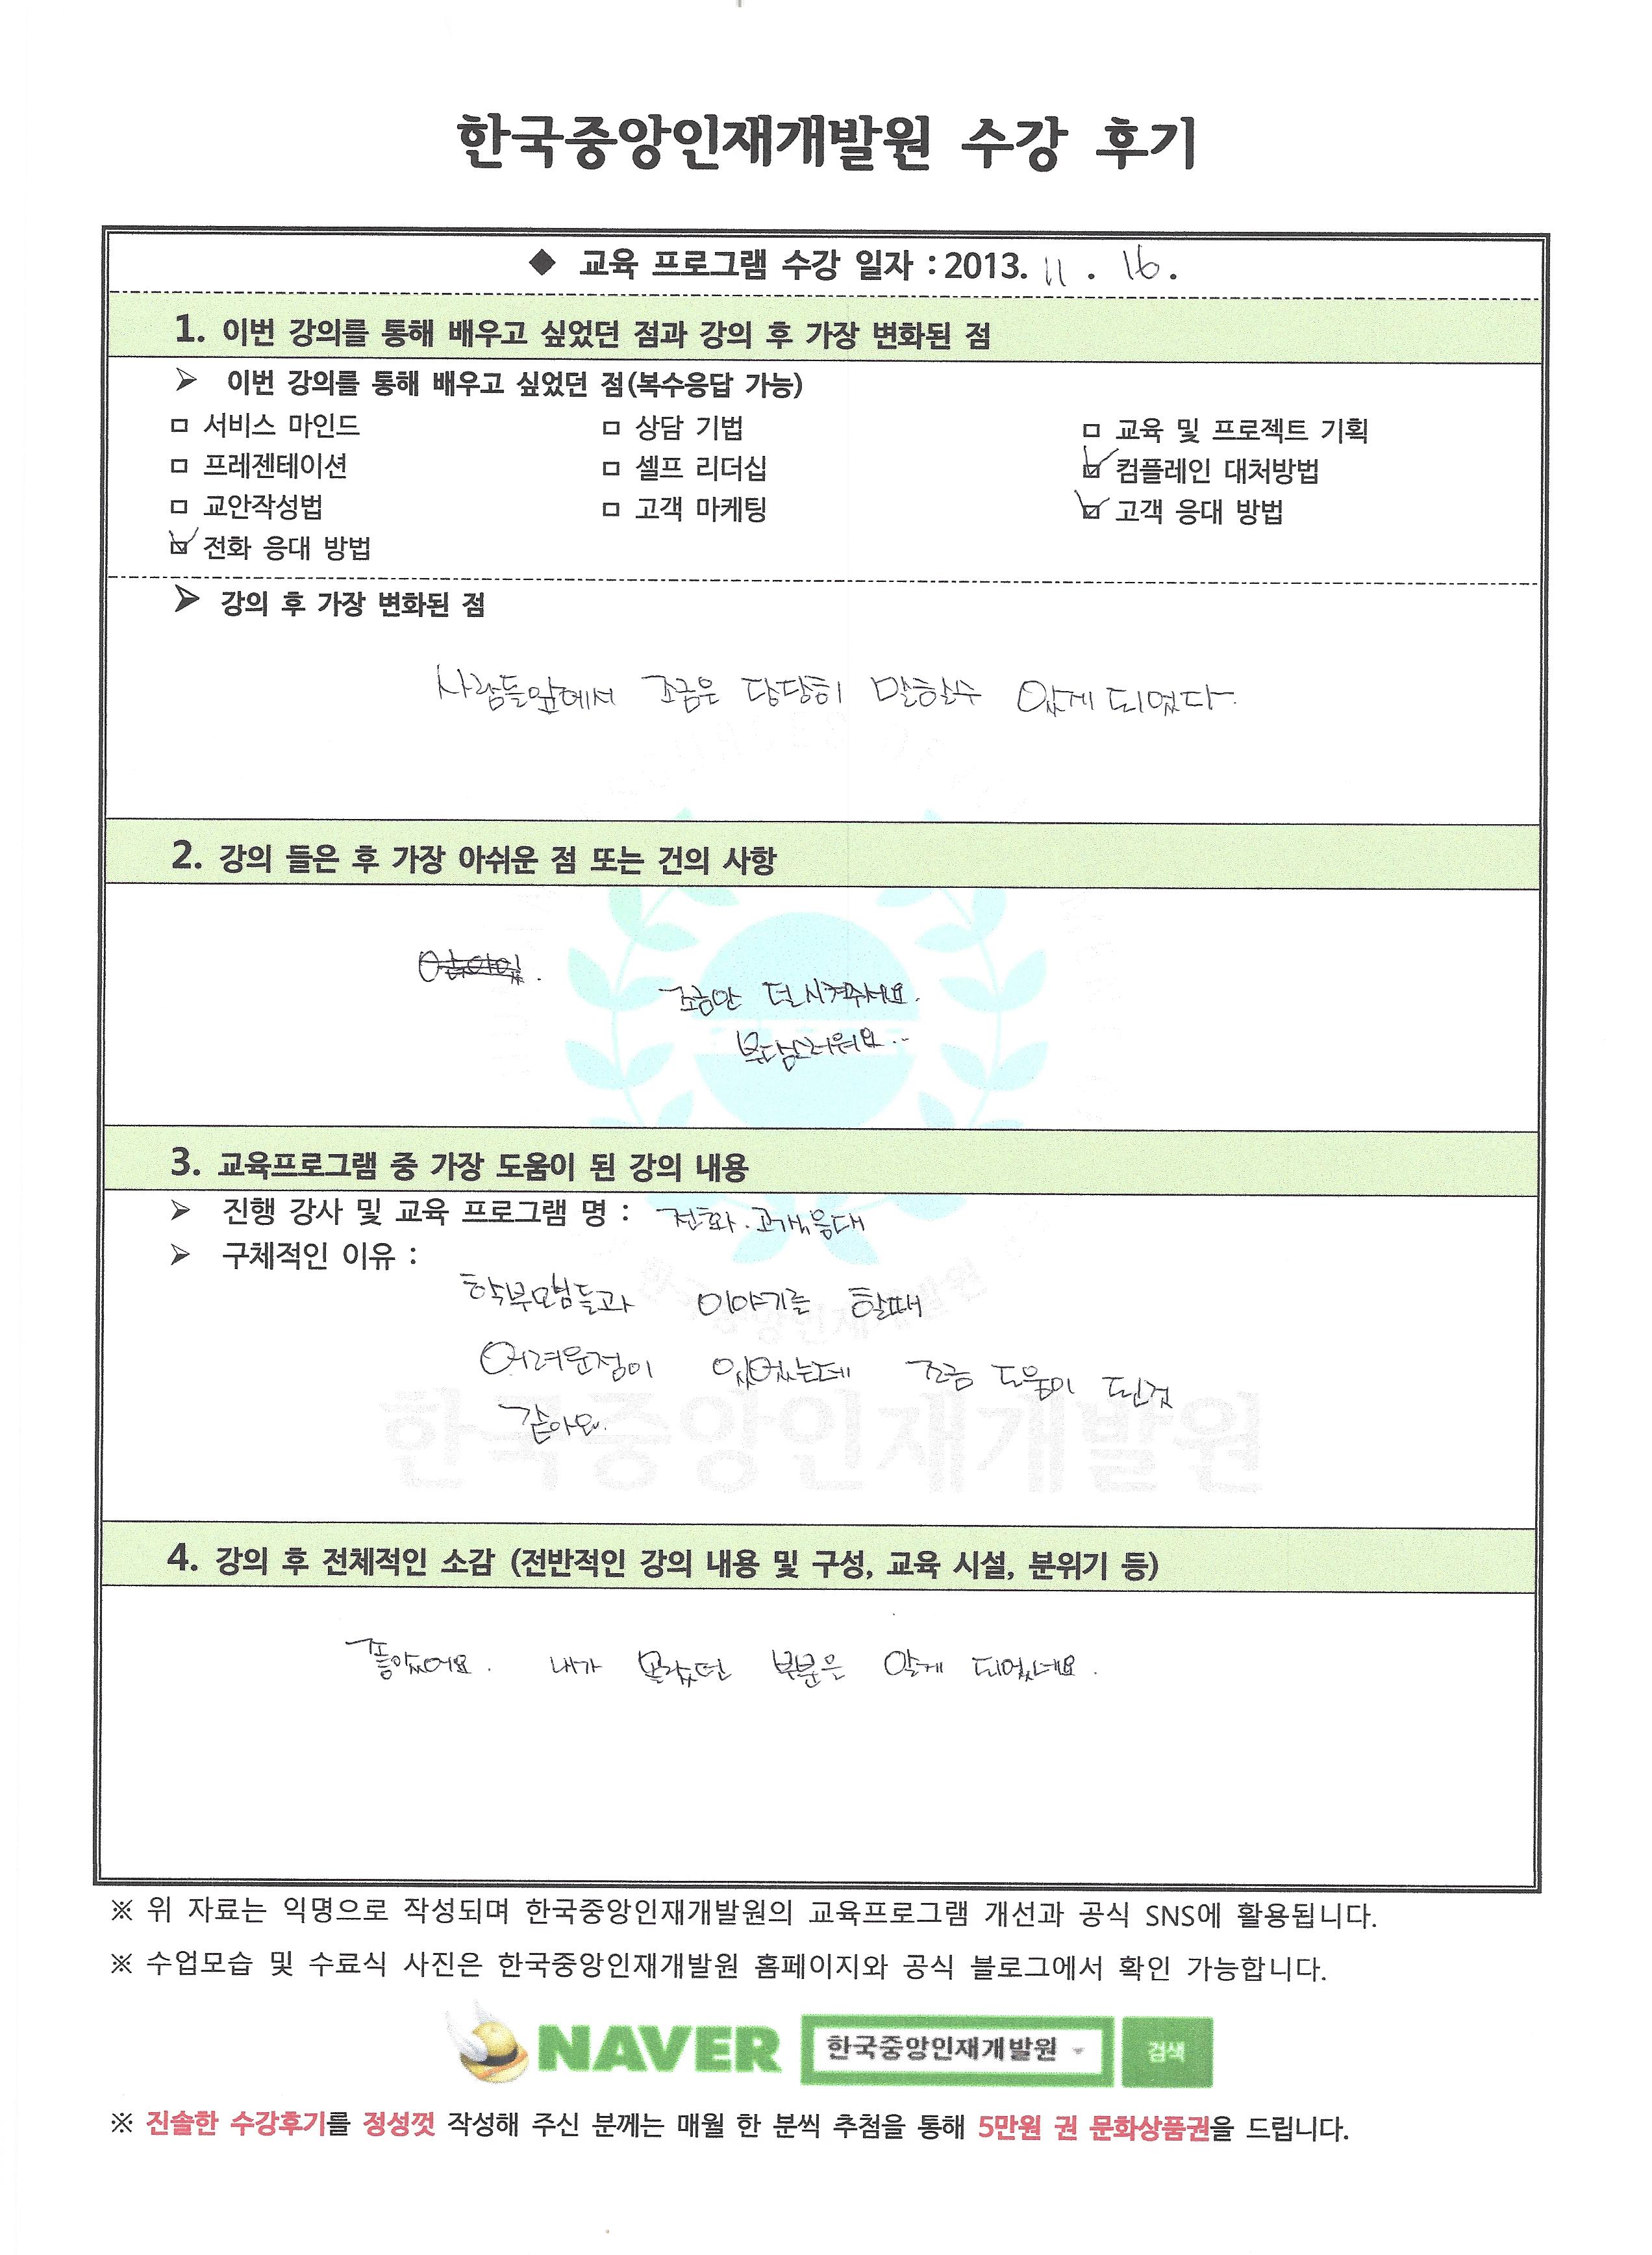 한국중앙인재개발원 수강 후기
◆ 교육 프로그램 수강 일자 : 2013. 11 . 16 .
1. 이번 강의를 통해 배우고 싶었던 점과 강의 후 가장 변화된 점
➢ 이번 강의를 통해 배우고 싶었던 점(복수응답 가능)
□ 서비스 마인드 □ 상담 기법 □ 교육 및 프로젝트 기획
□ 프레젠테이션 □ 셀프 리더십 ☑ 컴플레인 대처방법
□ 교안작성법 □ 고객 마케팅 ☑ 고객 응대 방법
☑ 전화 응대 방법
➢ 강의 후 가장 변화된 점
사람들앞에서 조금은 당당히 말할수 있게 되었다.
2. 강의 들은 후 가장 아쉬운 점 또는 건의 사항
조금만 덜 시켜주세요.
부담스러워요..
3. 교육프로그램 중 가장 도움이 된 강의 내용
➢ 진행 강사 및 교육 프로그램 명 : 전화. 고객응대
➢ 구체적인 이유 :
학부모님들과 이야기를 할때
어려운점이 있었는데 조금 도움이 된것
같아요.
한국중앙인재개발원
4. 강의 후 전체적인 소감 (전반적인 강의 내용 및 구성, 교육 시설, 분위기 등)
좋았어요. 내가 몰랐던 부분은 알게 되었네요.
※ 위 자료는 익명으로 작성되며 한국중앙인재개발원의 교육프로그램 개선과 공식 SNS에 활용됩니다.
※ 수업모습 및 수료식 사진은 한국중앙인재개발원 홈페이지와 공식 블로그에서 확인 가능합니다.
NAVER 한국중앙인재개발원 검색
※ 진솔한 수강후기를 정성껏 작성해 주신 분께는 매월 한 분씩 추첨을 통해 5만원 권 문화상품권을 드립니다.